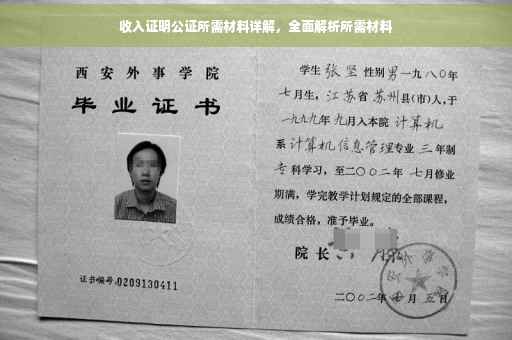 收入证明公证所需材料详解，全面解析所需材料
西安外事学院
毕业证书
证书编号:0209130411
学生 张坚 性别男一九八〇年
七月生，江苏省苏州县(市)人,于
一九九九年九月入本院计算机
系计算机信息管理专业三年制
专科学习，至二〇〇二年七月修业
期满，学完教学计划规定的全部课程，
成绩合格，准予毕业。
院长
二〇〇二年 月五日